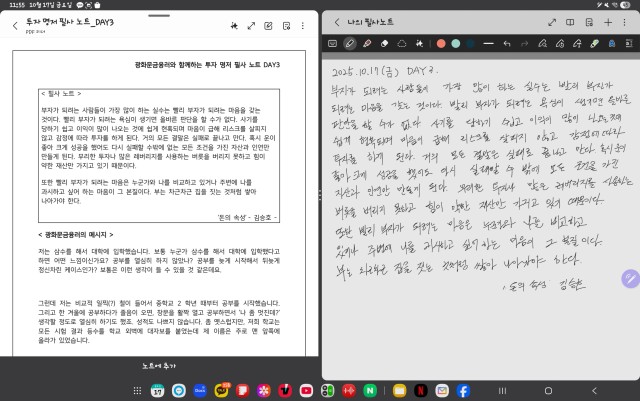 11:55 10월17일 금요일
89%
투자 명저 필사 노트_DAY3
나의 필사노트
광화문금융러와 함께하는 투자 명저 필사 노트 DAY3
< 필사 노트 >
부자가 되려는 사람들이 가장 많이 하는 실수는 빨리 부자가 되려는 마음을 갖는
것이다. 빨리 부자가 되려는 욕심이 생기면 올바른 판단을 할 수가 없다. 사기를
당하기 쉽고 이익이 많이 나오는 것에 쉽게 현혹되며 마음이 급해 리스크를 살피지
않고 감정에 따라 투자를 하게 된다. 거의 모든 결말은 실패로 끝나고 만다. 혹시 운이
좋아 크게 성공을 했어도 다시 실패할 수밖에 없는 모든 조건을 가진 자산과 인연만
만들게 된다. 무리한 투자나 많은 레버리지를 사용하는 버릇을 버리지 못하고 힘이
약한 재산만 가지고 있기 때문이다.
또한 빨리 부자가 되려는 마음은 누군가와 나를 비교하고 있거나 주변에 나를
과시하고 싶어 하는 마음이 그 본질이다. 부는 차근차근 집을 짓는 것처럼 쌓아
나아가야 한다.
'돈의 속성' - 김승호 -
< 광화문금융러의 메시지 >
저는 삼수를 해서 대학에 입학했습니다. 보통 누군가 삼수를 해서 대학에 입학했다고
하면 어떤 느낌이신가요? 공부를 열심히 하지 않았나? 공부를 늦게 시작해서 뒤늦게
정신차린 케이스인가? 보통은 이런 생각이 들 수 있을 것 같은데요.
그런데 저는 비교적 일찍(?) 철이 들어서 중학교 2 학년 때부터 공부를 시작했습니다.
그리고 한 겨울에 공부하다가 졸음이 오면, 창문을 활짝 열고 공부하면서 '나 좀 멋진데?'
생각할 정도로 열심히 하기도 했죠. 성적도 나쁘지 않습니다. 좀 옛스럽지만, 저희 학교는
모든 시험 결과 등수를 학교 외벽에 대자보를 붙였는데 제 이름은 주로 맨 앞쪽에
올라가 있었습니다.
노트에 추가
2025.10.17(금) DAY3.
부자가 되려는 사람들이 가장 많이 하는 실수는 빨리 부자가
되려는 마음을 갖는 것이다. 빨리 부자가 되려는 욕심이 생기면 올바른
판단을 할 수가 없다. 사기를 당하기 쉽고 이익이 많이 나오는 것에
쉽게 현혹되며 마음이 급해 리스크를 살피지 않고 감정에 따라
투자를 하게 된다. 거의 모든 결말은 실패로 끝나고 만다. 혹시 운이
좋아 크게 성공을 했어도 다시 실패할 수 밖에 모든 조건을 가진
자산과 인연만 만들게 된다. 무리한 투자나 많은 레버리지를 사용하는
버릇을 버리지 못하고 힘이 약한 재산만 가지고 있기 때문이다.
또한 빨리 부자가 되려는 마음은 누군가와 나를 비교하고
있거나 주변에 나를 과시하고 싶어하는 마음이 그 본질이다.
부는 차근차근 집을 짓는 것처럼 쌓아 나아가야 한다.
돈의 속성 김승호